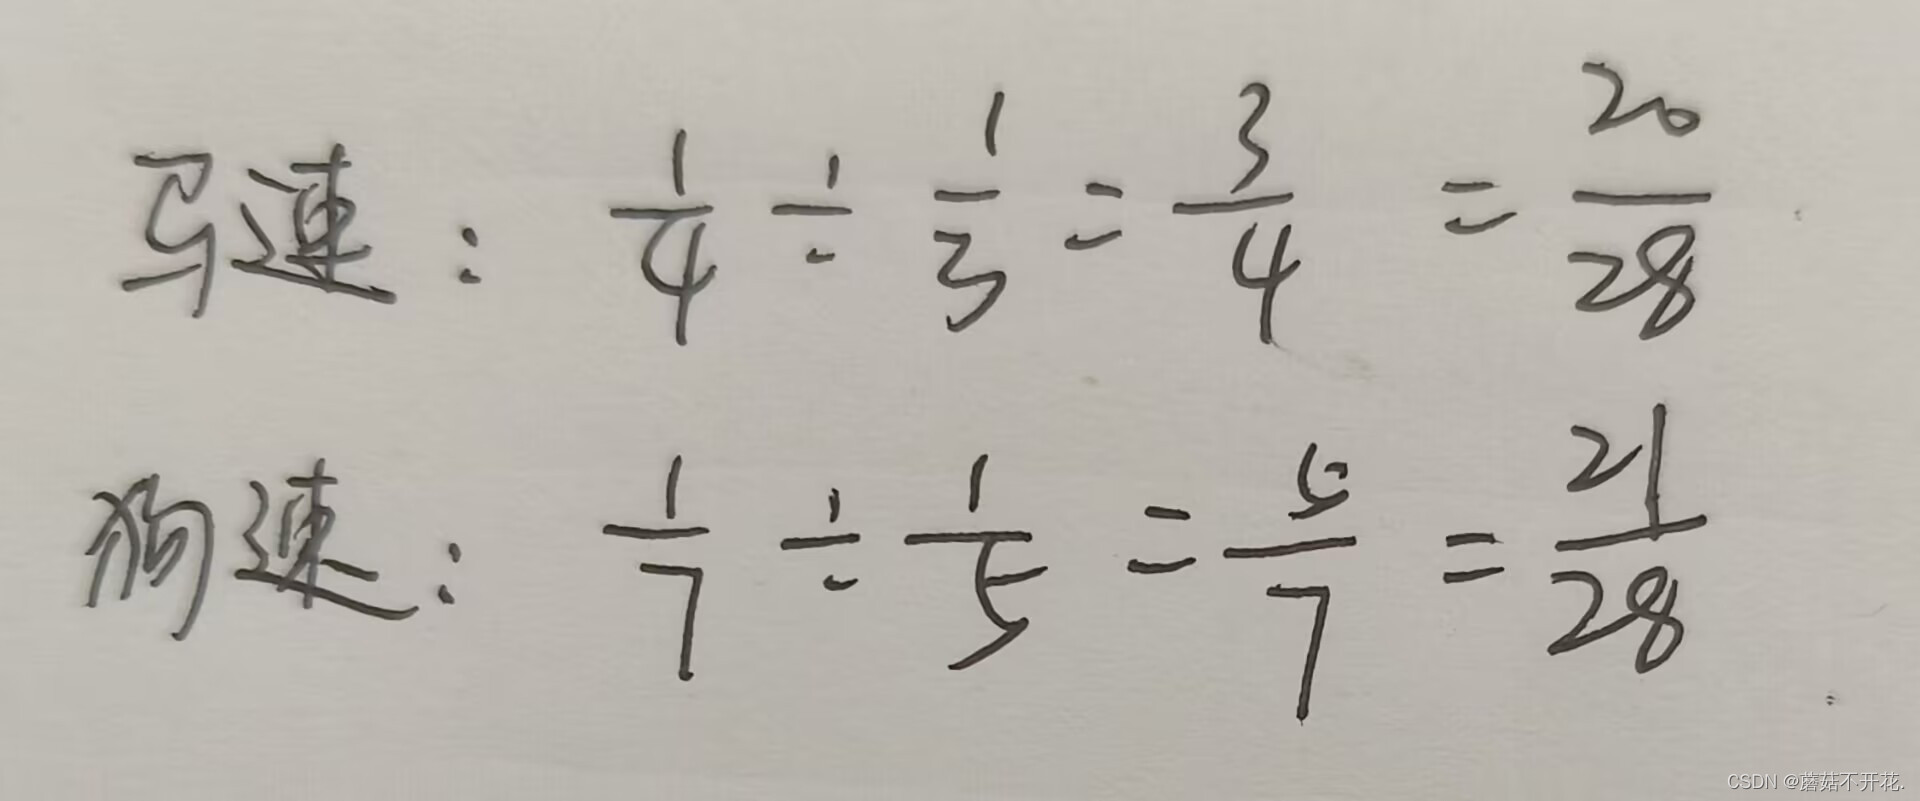 马速： 1/4 ÷ 1/3 = 3/4 = 20/28
狗速： 1/7 ÷ 1/5 = 5/7 = 21/28
CSDN @蘑菇不开花.